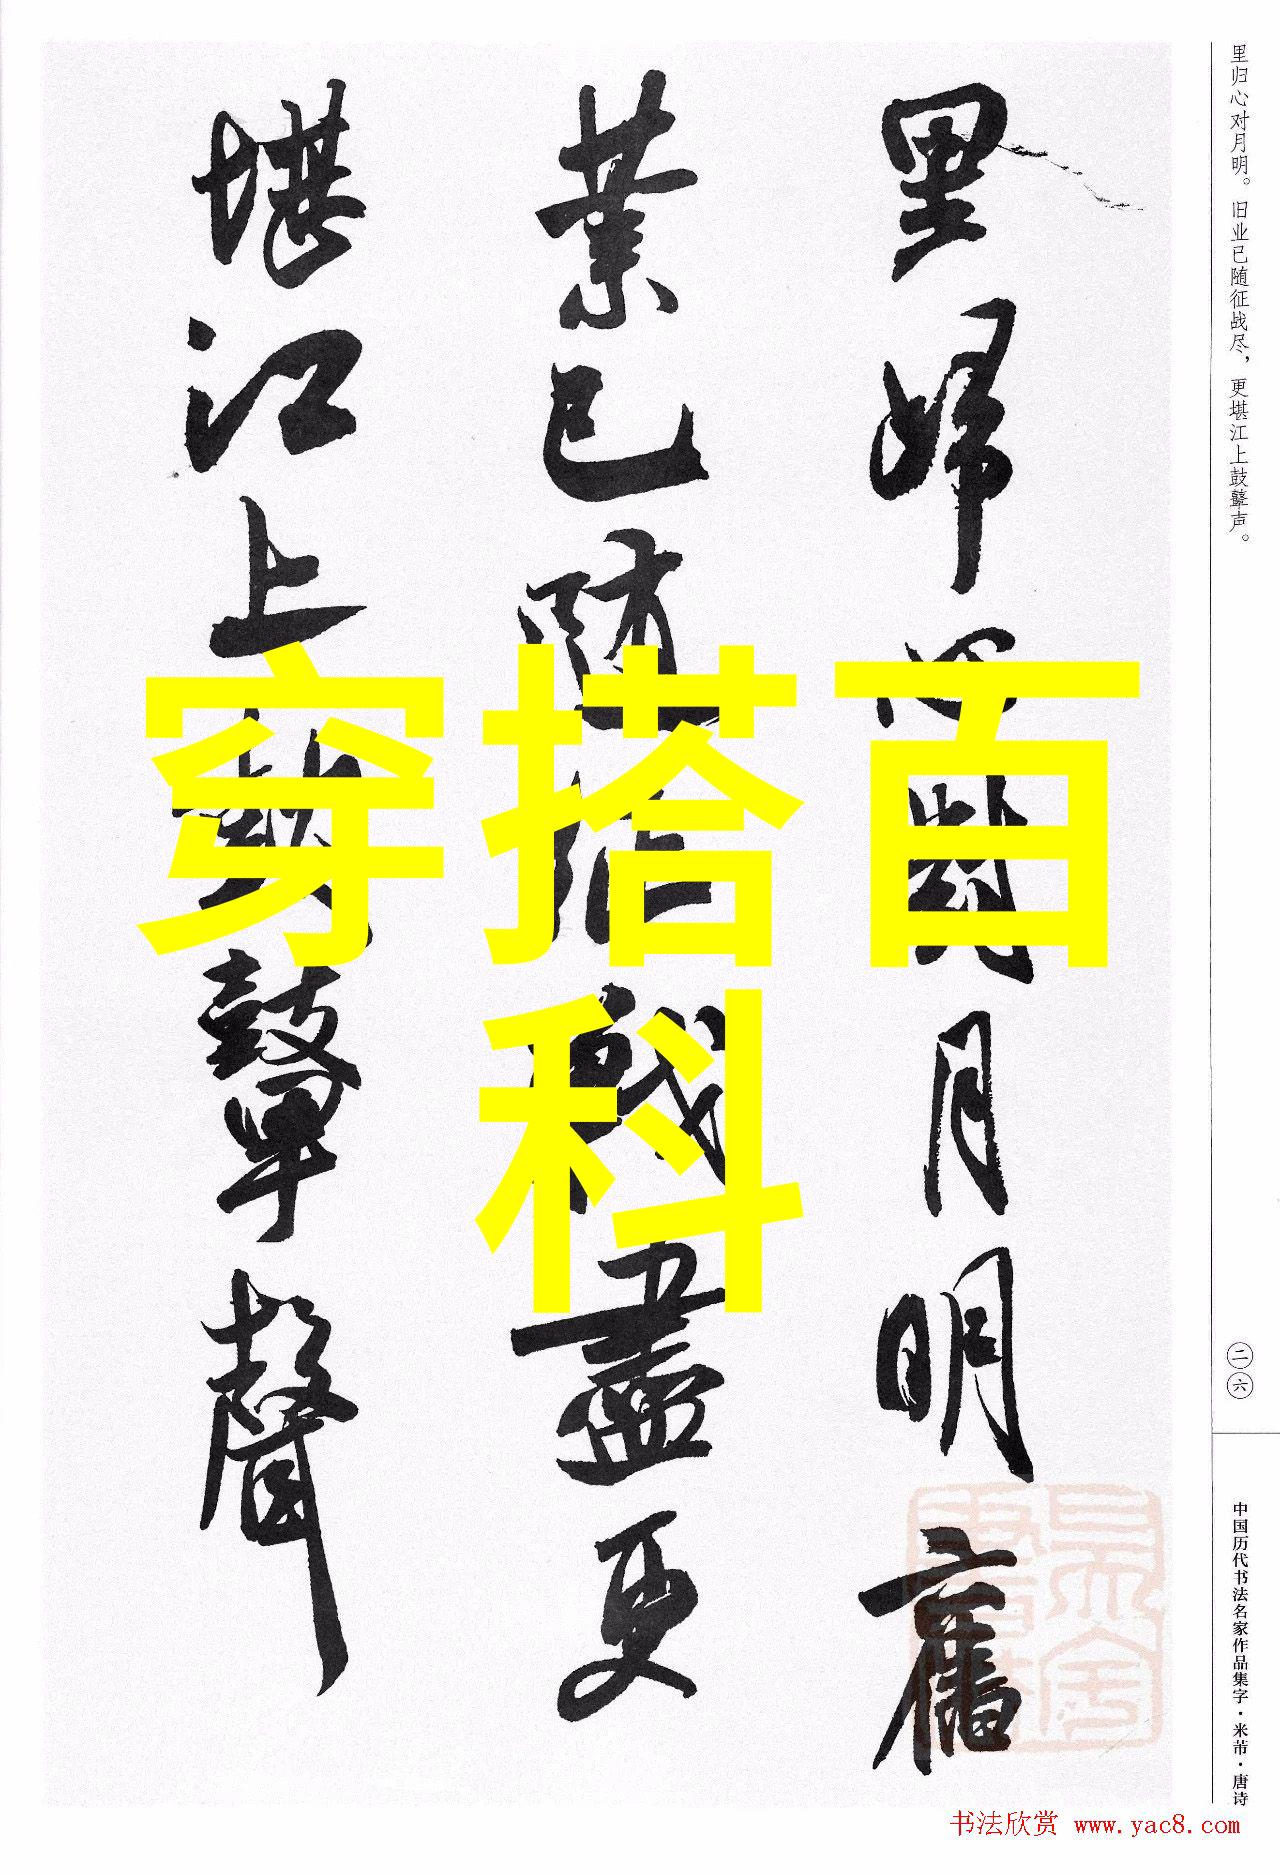 里归心对月明。旧业已随征战尽，更堪江上鼓鼙声。
里歸心對月明舊
業已随征戰盡更
堪江上鼓鼙聲
穿搭百
科
二六
中国历代书法名家作品集字·米芾·唐诗
书法欣赏 www.yac8.com